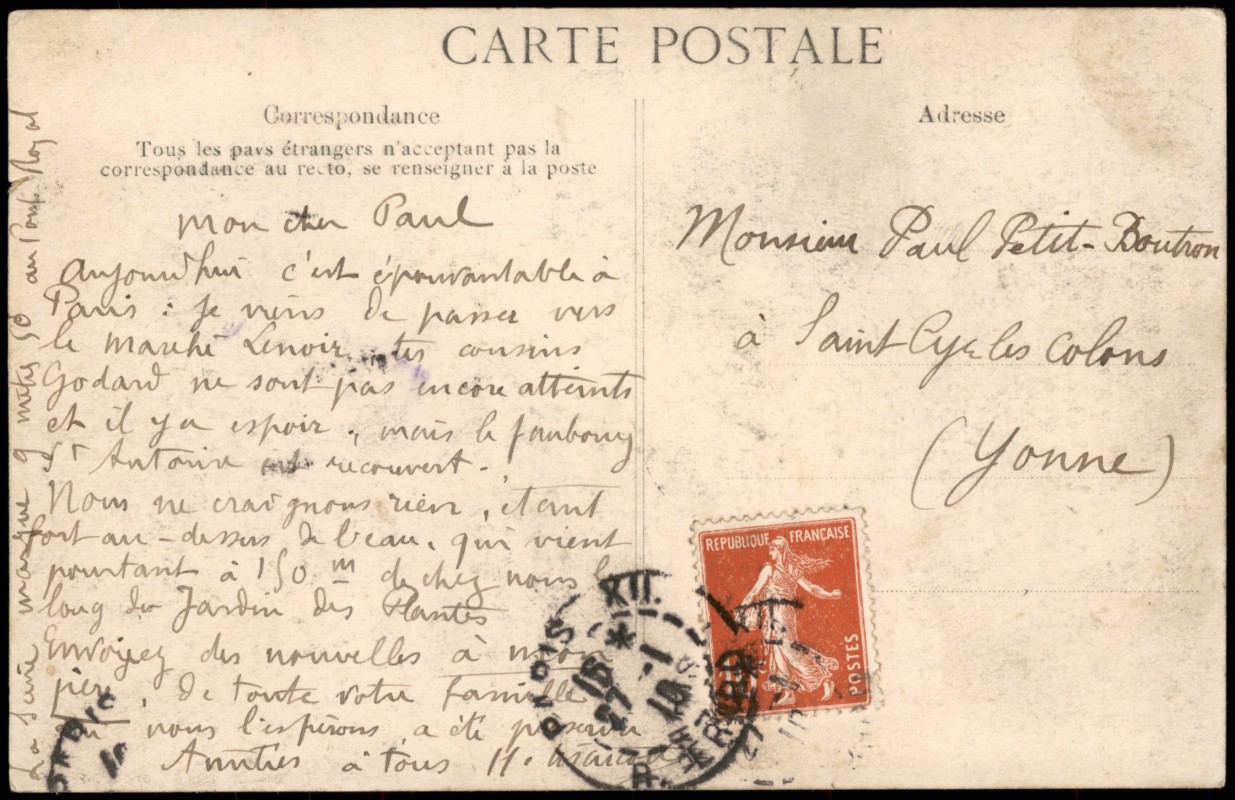 CARTE POSTALE
Correspondance
Tous les pays étrangers n'acceptant pas la
correspondance au recto, se renseigner à la poste
Mon cher Paul
Aujourd'hui c'est épouvantable à
Paris : je viens de passer vers
le marché Lenoir, tes cousins
Godard ne sont pas encore atteints
et il y a espoir, mais le faubourg
St Antoine est recouvert.
Nous ne craignons rien, étant
fort au-dessus de l'eau, qui vient
pourtant à 150 m de chez nous le
long du Jardin des Plantes
Envoyez des nouvelles à mon
père, de toute votre famille
qui nous l'espérons, a été préservée
Amitiés à tous
La Seine marque 9 mètres 50 au Pont Royal
Adresse
Monsieur Paul Petit-Boutron
à Saint Cyr les Colons
(Yonne)
REPUBLIQUE FRANÇAISE
POSTES
PARIS XII.